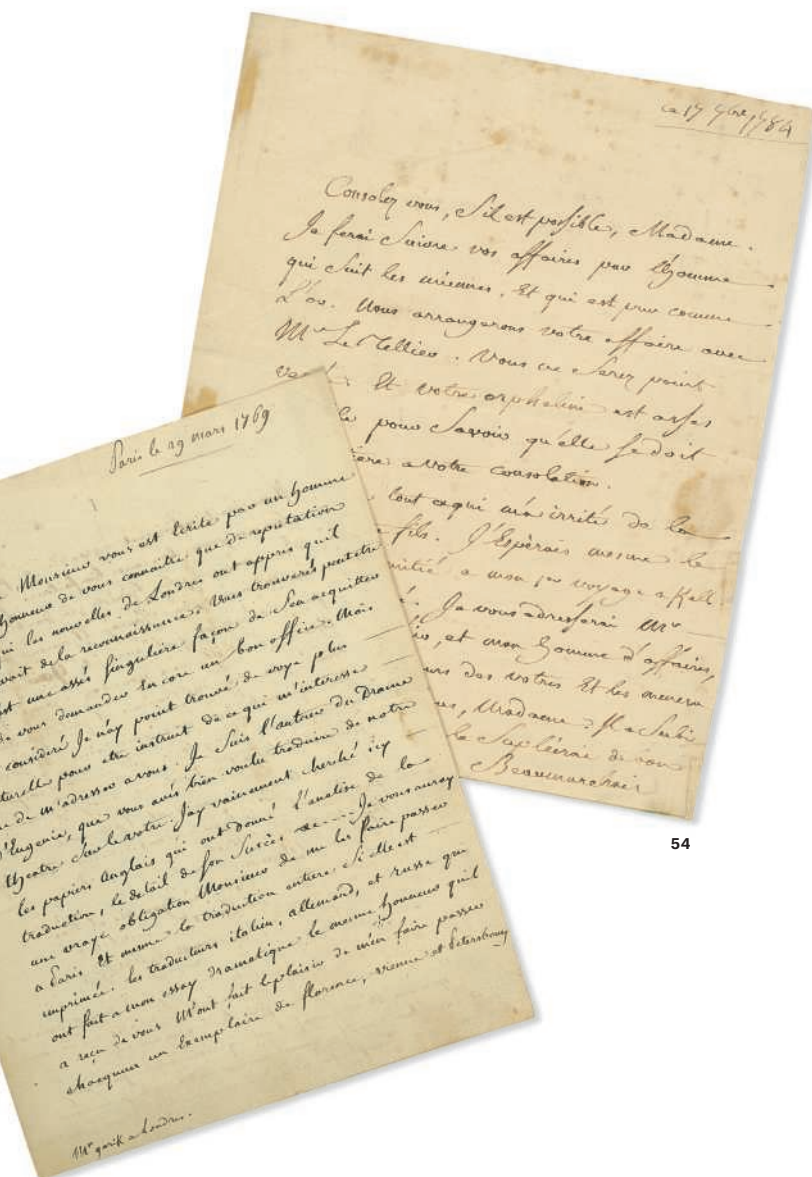 ce 17 9bre 1784
Consolez vous, S'il est possible, Madame.
Je ferai Suivre vos affaires par l'homme
qui Suit les miennes, Et qui est pur comme
L'or. Nous arrangerons votre affaire avec
Mr Le Tellier. Vous ne Serez point
Et votre orpheline est assés
pour Savoir qu'elle Se doit
a votre consolation.
tout ce qui m'a irrité de la
fils. J'Espérais mesme le
a mon per voyage a Kell
Je vous adresserai Mr
et mon homme d'affaires,
des votres Et les menera
Madame. Il a Subi
de bon
Beaumarchais
54
Paris le 29 mars 1769
Monsieur vous est Ecrite par un homme
honneur de vous connaitre que de reputation
qui les nouvelles de Londres ont appris quil
avait de la reconnaissance. Vous trouverés peutetre
est une assés Singuliere façon de S'en acquitter
de vous demander Encore un bon office. Mais
consideré Je n'ay point trouvé de voye plus
pour etre instruit de ce qui m'interesse
de m'adresser a vous. Je Suis l'auteur du Drame
d'Eugenie, que vous avés bien voulu traduire de notre
theatre Sur le votre. Jay vainement cherché icy
les papiers Anglais qui ont donné L'analise de la
traduction, le detail de Son Succès &c. Je vous auray
une vraye obligation Monsieur de me les faire passer
a Paris Et mesme la traduction entiere Si elle est
imprimée. les traducteurs italien, allemand, et russe qui
ont fait a mon essay dramatique le mesme honneur quil
a reçu de vous M'ont fait le plaisir de m'en faire passer
chacqun un Exemplaire de florence, vienne et Petersbourg
Mr garik a Londres.